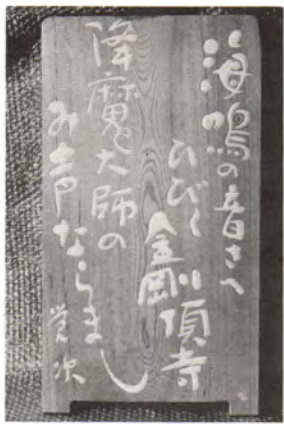 海鳴の音さへ
ひびく金剛頂寺
降魔大師の
み声ならまし